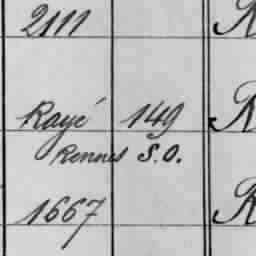 2111
Rayé 149
Rennes S.O.
1667